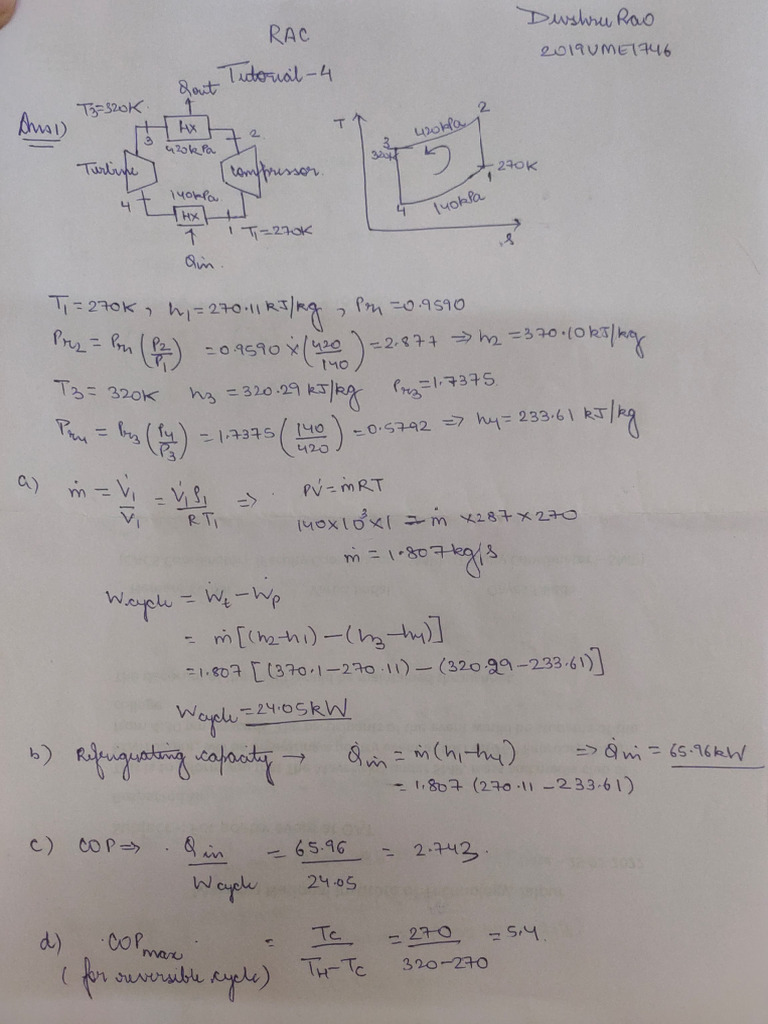 RAC
Divshru Rao
2019UME1746
Tutorial-4
Ans1)
Qout
T3=320K
HX
3
2
420kPa
Turbine
Compressor
140kPa
4
HX
1
T1=270K
Qin
T
2
420kPa
3
320K
270K
1
4
140kPa
s
T1=270K, h1=270.11KJ/kg, Pr1=0.9590
Pr2 = Pr1 (P2/P1) = 0.9590 × (420/140) = 2.877 ⇒ h2 = 370.10KJ/kg
T3= 320K h3 = 320.29 KJ/kg Pr3=1.7375
Pr4 = Pr3 (P4/P3) = 1.7375 (140/420) = 0.5792 ⇒ h4= 233.61 KJ/kg
a) ṁ = V̇1/V1 = V̇1 P1/RT1 ⇒ PV̇=ṁRT
140×10³×1 = ṁ ×287×270
ṁ = 1.807kg/s
Wcycle = Ẇt - Ẇp
= ṁ[(h2-h1) - (h3-h4)]
=1.807 [(370.1-270.11) - (320.29-233.61)]
Wcycle = 24.05KW
b) Refrigerating capacity → Q̇in = ṁ(h1-h4) ⇒ Q̇in = 65.96KW
= 1.807 (270.11 - 233.61)
c) COP ⇒ Qin/Wcycle = 65.96/24.05 = 2.743.
d) COPmax = Tc/TH-Tc = 270/320-270 = 5.4.
(for reversible cycle)